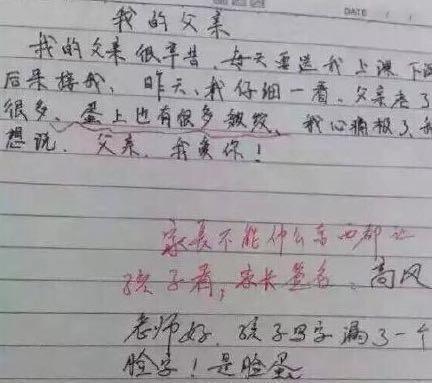 我的父亲
我的父亲很辛苦,每天要送我上课,下课
后来接我,昨天,我仔细一看,父亲老了
很多,蛋上也有很多皱纹,我心痛极了,我
想说,父亲,我爱你!
家长不能什么东西都让
孩子看,家长签名:高风
老师好,孩子写字漏了一个
脸字!是脸蛋